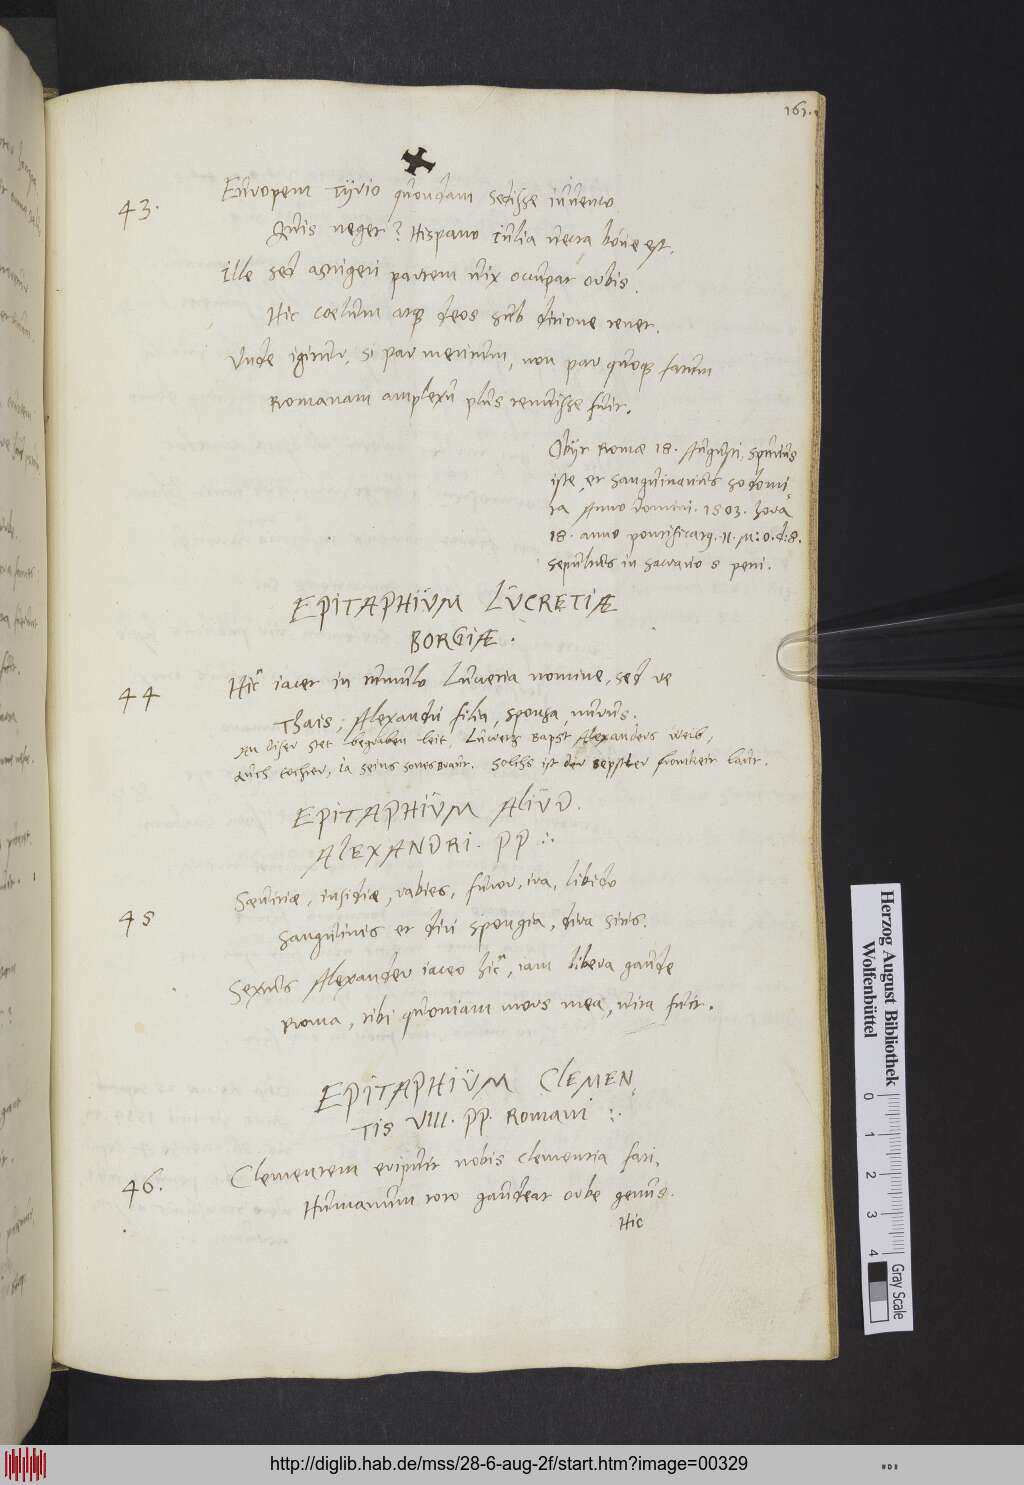 161.
43.
Europem Tyrio quondam sedisse iuuenco
Quis neget? Hispano iulia uecta boue est.
ille sed astrigeri partem uix occupat orbis.
Hic coelum atque deos sub ditione tenet.
Unde igitur, si par meritum, non par quoque fatum
Romanam amplexu plus tenuisse fuit.
Obijt Romæ 18. Augusti, spurius
iste, et sanguinarius sodomi-
ta Anno domini. 1503. hora
18. anno pontificatus. 11. M: 0. d: 8.
sepultus in sacrario s petri.
EPITAPHIUM LUCRETIÆ
BORGIÆ.
44
Hic iacet in tumulo Lucretia nomine, sed re
Thais, Alexandri filia, sponsa, nurus.
An diser stet begraben leit, Lucretz Bapst Alexanders weib,
auch tochter, ia seins sones Braut. Solchs ist der Bepstler fromkeit laut.
EPITAPHIUM ALIUD.
ALEXANDRI. PP.
45
Sæuitiæ, insidiæ, rabies, furor, ira, libido
Sanguinis et diri spongia, dira sitis.
Sextus Alexander iaceo hic, iam libera gaude
Roma, tibi quoniam mors mea, uita fuit.
EPITAPHIUM CLEMEN
TIS VIII. PP. Romani
46.
Clementem eripuit nobis clementia fati,
Humanum toto gaudeat orbe genus.
Hic
Herzog August Bibliothek
Wolfenbüttel
0 1 2 3 4
Gray Scale
http://diglib.hab.de/mss/28-6-aug-2f/start.htm?image=00329